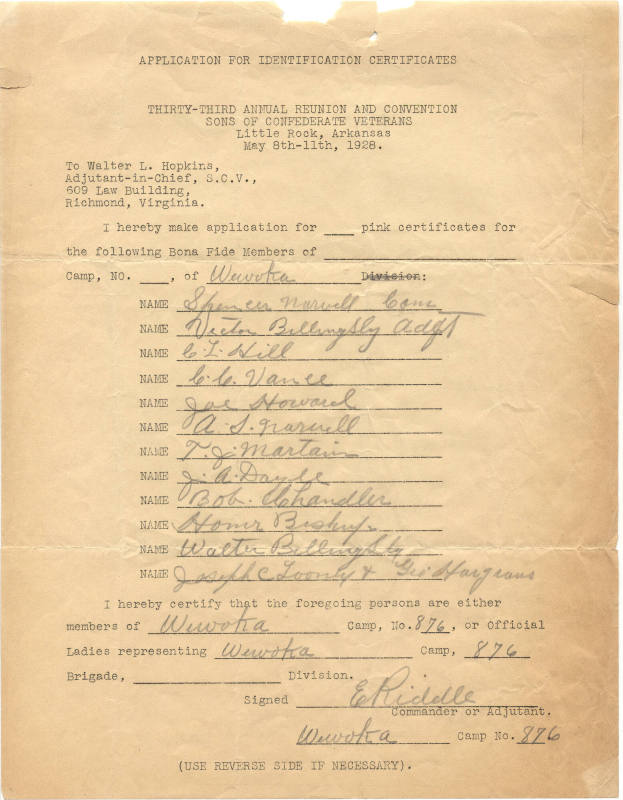 APPLICATION FOR IDENTIFICATION CERTIFICATES
THIRTY-THIRD ANNUAL REUNION AND CONVENTION
SONS OF CONFEDERATE VETERANS
Little Rock, Arkansas
May 8th-11th, 1928.
To Walter L. Hopkins,
Adjutant-in-Chief, S.C.V.,
609 Law Building,
Richmond, Virginia.
I hereby make application for ____ pink certificates for
the following Bona Fide Members of ____
Camp, NO. ___, of Wewoka Division:
NAME Spencer Norvell Com
NAME Victor Billingsly Adgt
NAME C. L. Hill
NAME C. C. Vance
NAME Joe Howard
NAME A. S. Norvell
NAME T. J. Martain
NAME J. A. Dayle
NAME Bob. Chandler
NAME Homer Bishop
NAME Walter Billingsly
NAME Joseph C Looney & Geo Hargraves
I hereby certify that the foregoing persons are either
members of Wewoka Camp, No. 876, or Official
Ladies representing Wewoka Camp, 876
Brigade, ____ Division.
Signed E Riddle
Commander or Adjutant.
Wewoka Camp No. 876
(USE REVERSE SIDE IF NECESSARY).